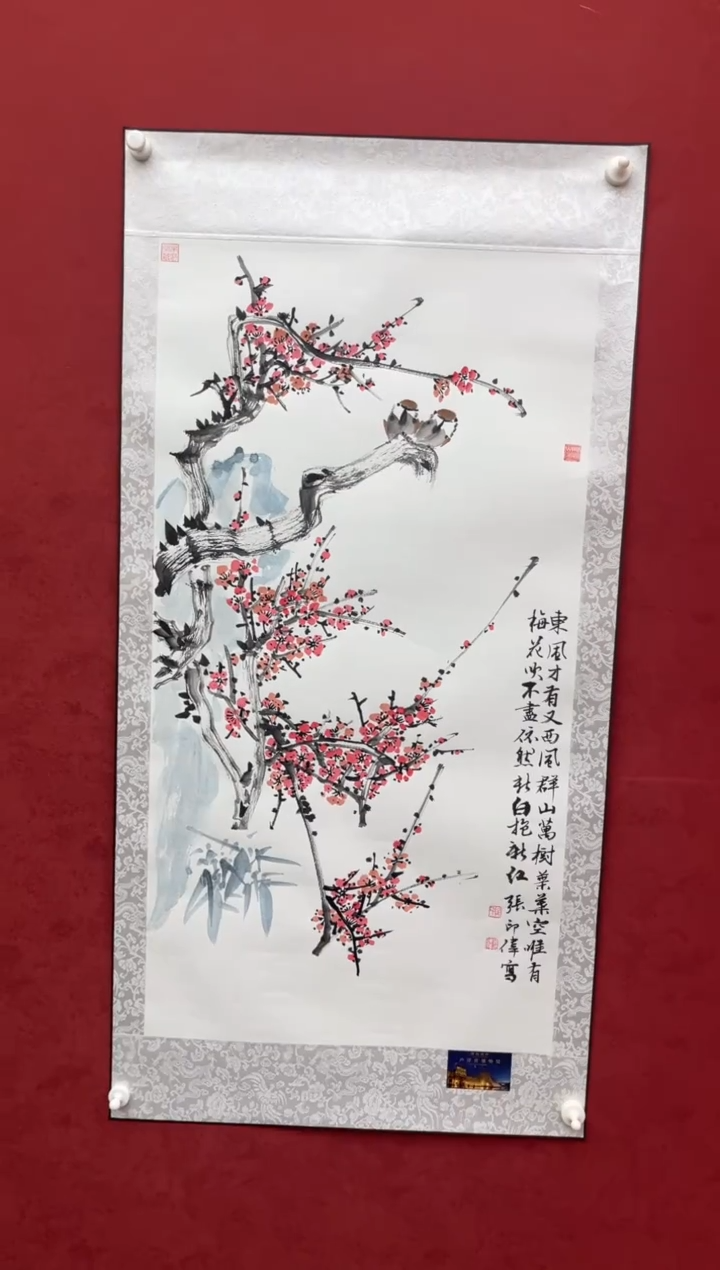 東風才有又西風群山萬樹葉葉空唯有
梅花吹不盡依然新白抱新红張印偉寫